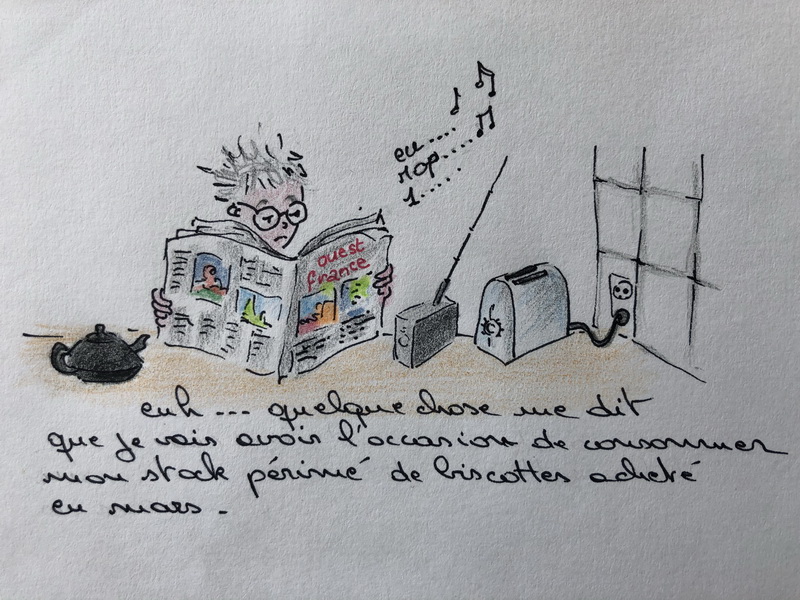 eu....
rop.....
1.....
ouest
france
euh ... quelque chose me dit
que je vais avoir l'occasion de consommer
mon stock périmé de biscottes acheté
en mars.